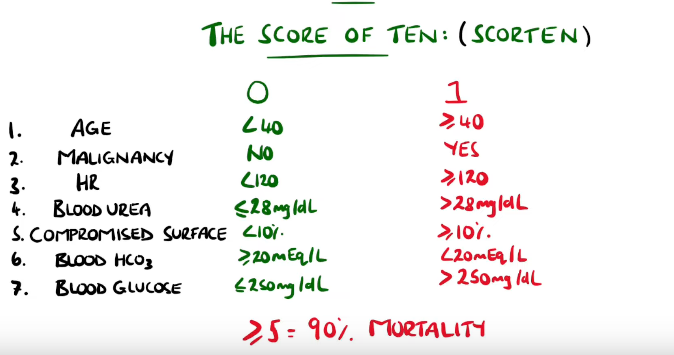 THE SCORE OF TEN: (SCORTEN)
0 1
1. AGE <40 ≥40
2. MALIGNANCY NO YES
3. HR <120 ≥120
4. BLOOD UREA ≤28mg/dL >28mg/dL
5. COMPROMISED SURFACE <10% ≥10%
6. BLOOD HCO3 ≥20mEq/L <20mEq/L
7. BLOOD GLUCOSE ≤250mg/dL >250mg/dL
≥5 = 90% MORTALITY